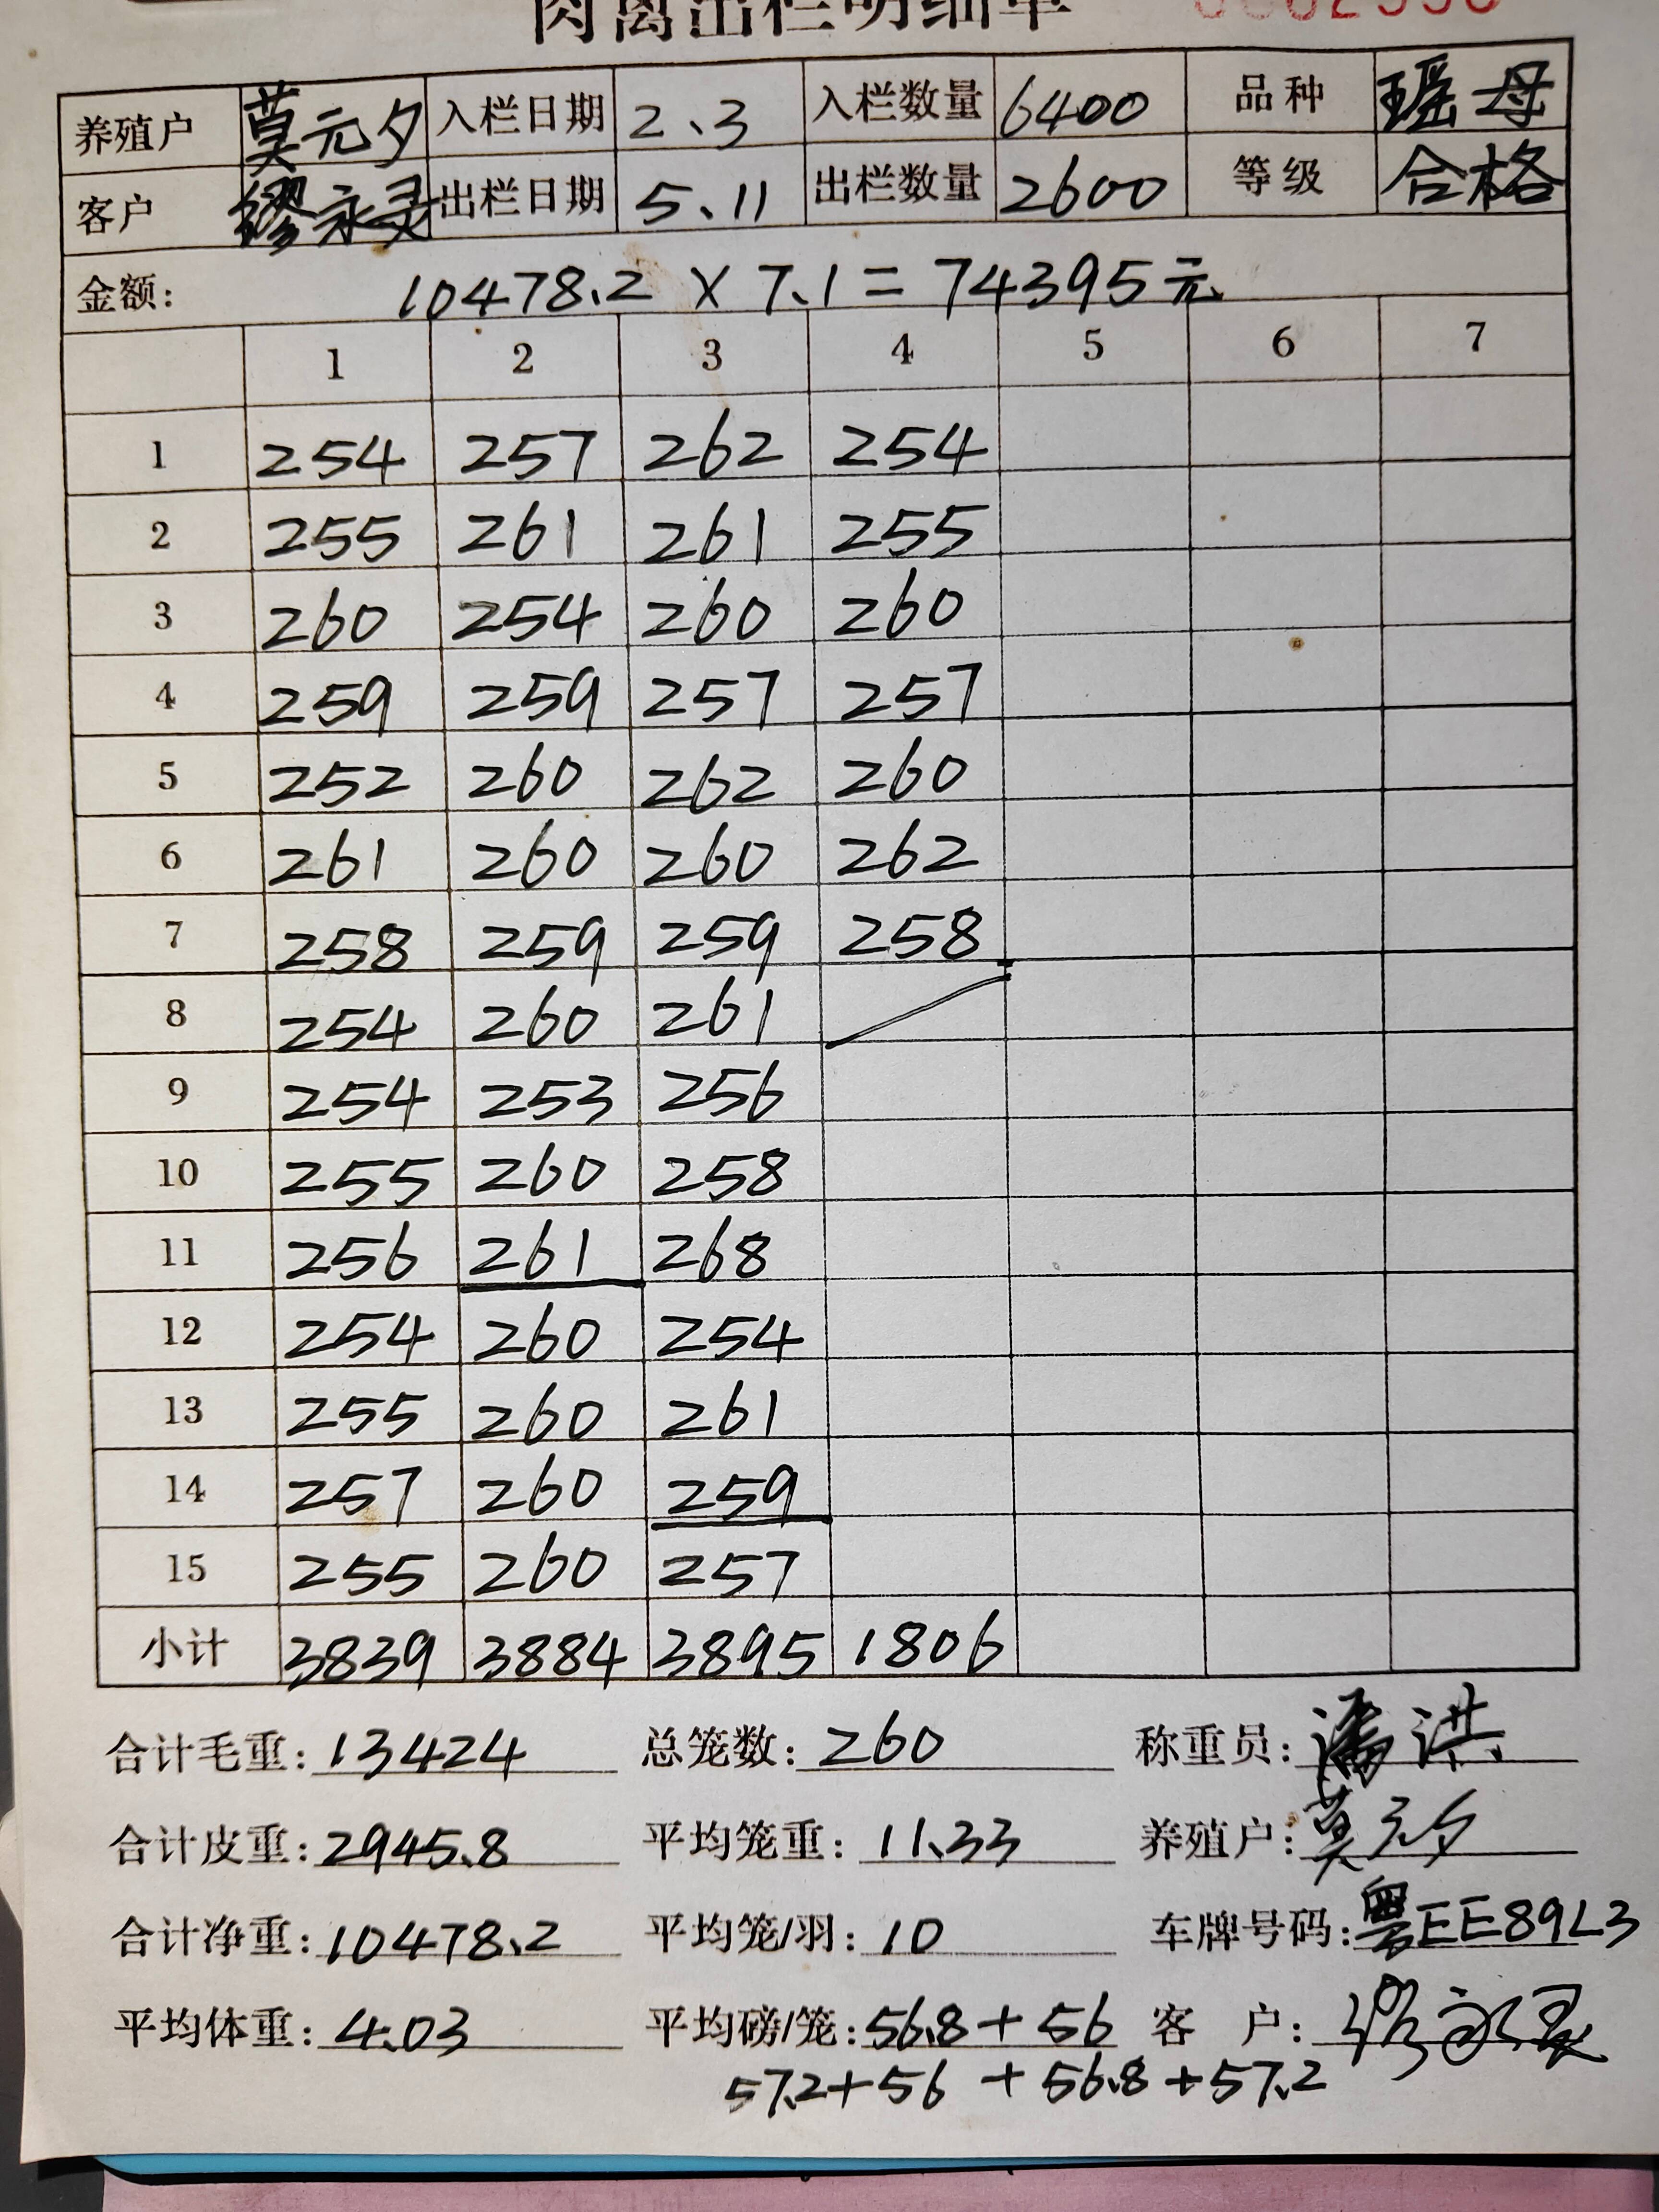 养殖户 莫元夕 入栏日期 2.3 入栏数量 6400 品种 瑶母
客户 缪永灵 出栏日期 5.11 出栏数量 2600 等级 合格
金额: 10478.2 × 7.1 = 74395元
1 2 3 4 5 6 7
1 254 257 262 254
2 255 261 261 255
3 260 254 260 260
4 259 259 257 257
5 252 260 262 260
6 261 260 260 262
7 258 259 259 258
8 254 260 261
9 254 253 256
10 255 260 258
11 256 261 268
12 254 260 254
13 255 260 261
14 257 260 259
15 255 260 257
小计 3839 3884 3895 1806
合计毛重: 13424 总笼数: 260 称重员: 潘洪
合计皮重: 2945.8 平均笼重: 11.33 养殖户: 莫元夕
合计净重: 10478.2 平均笼/羽: 10 车牌号码: 粤EE89L3
平均体重: 4.03 平均磅/笼: 56.8+56 客 户: 缪永灵
57.2+56 +56.8+57.2